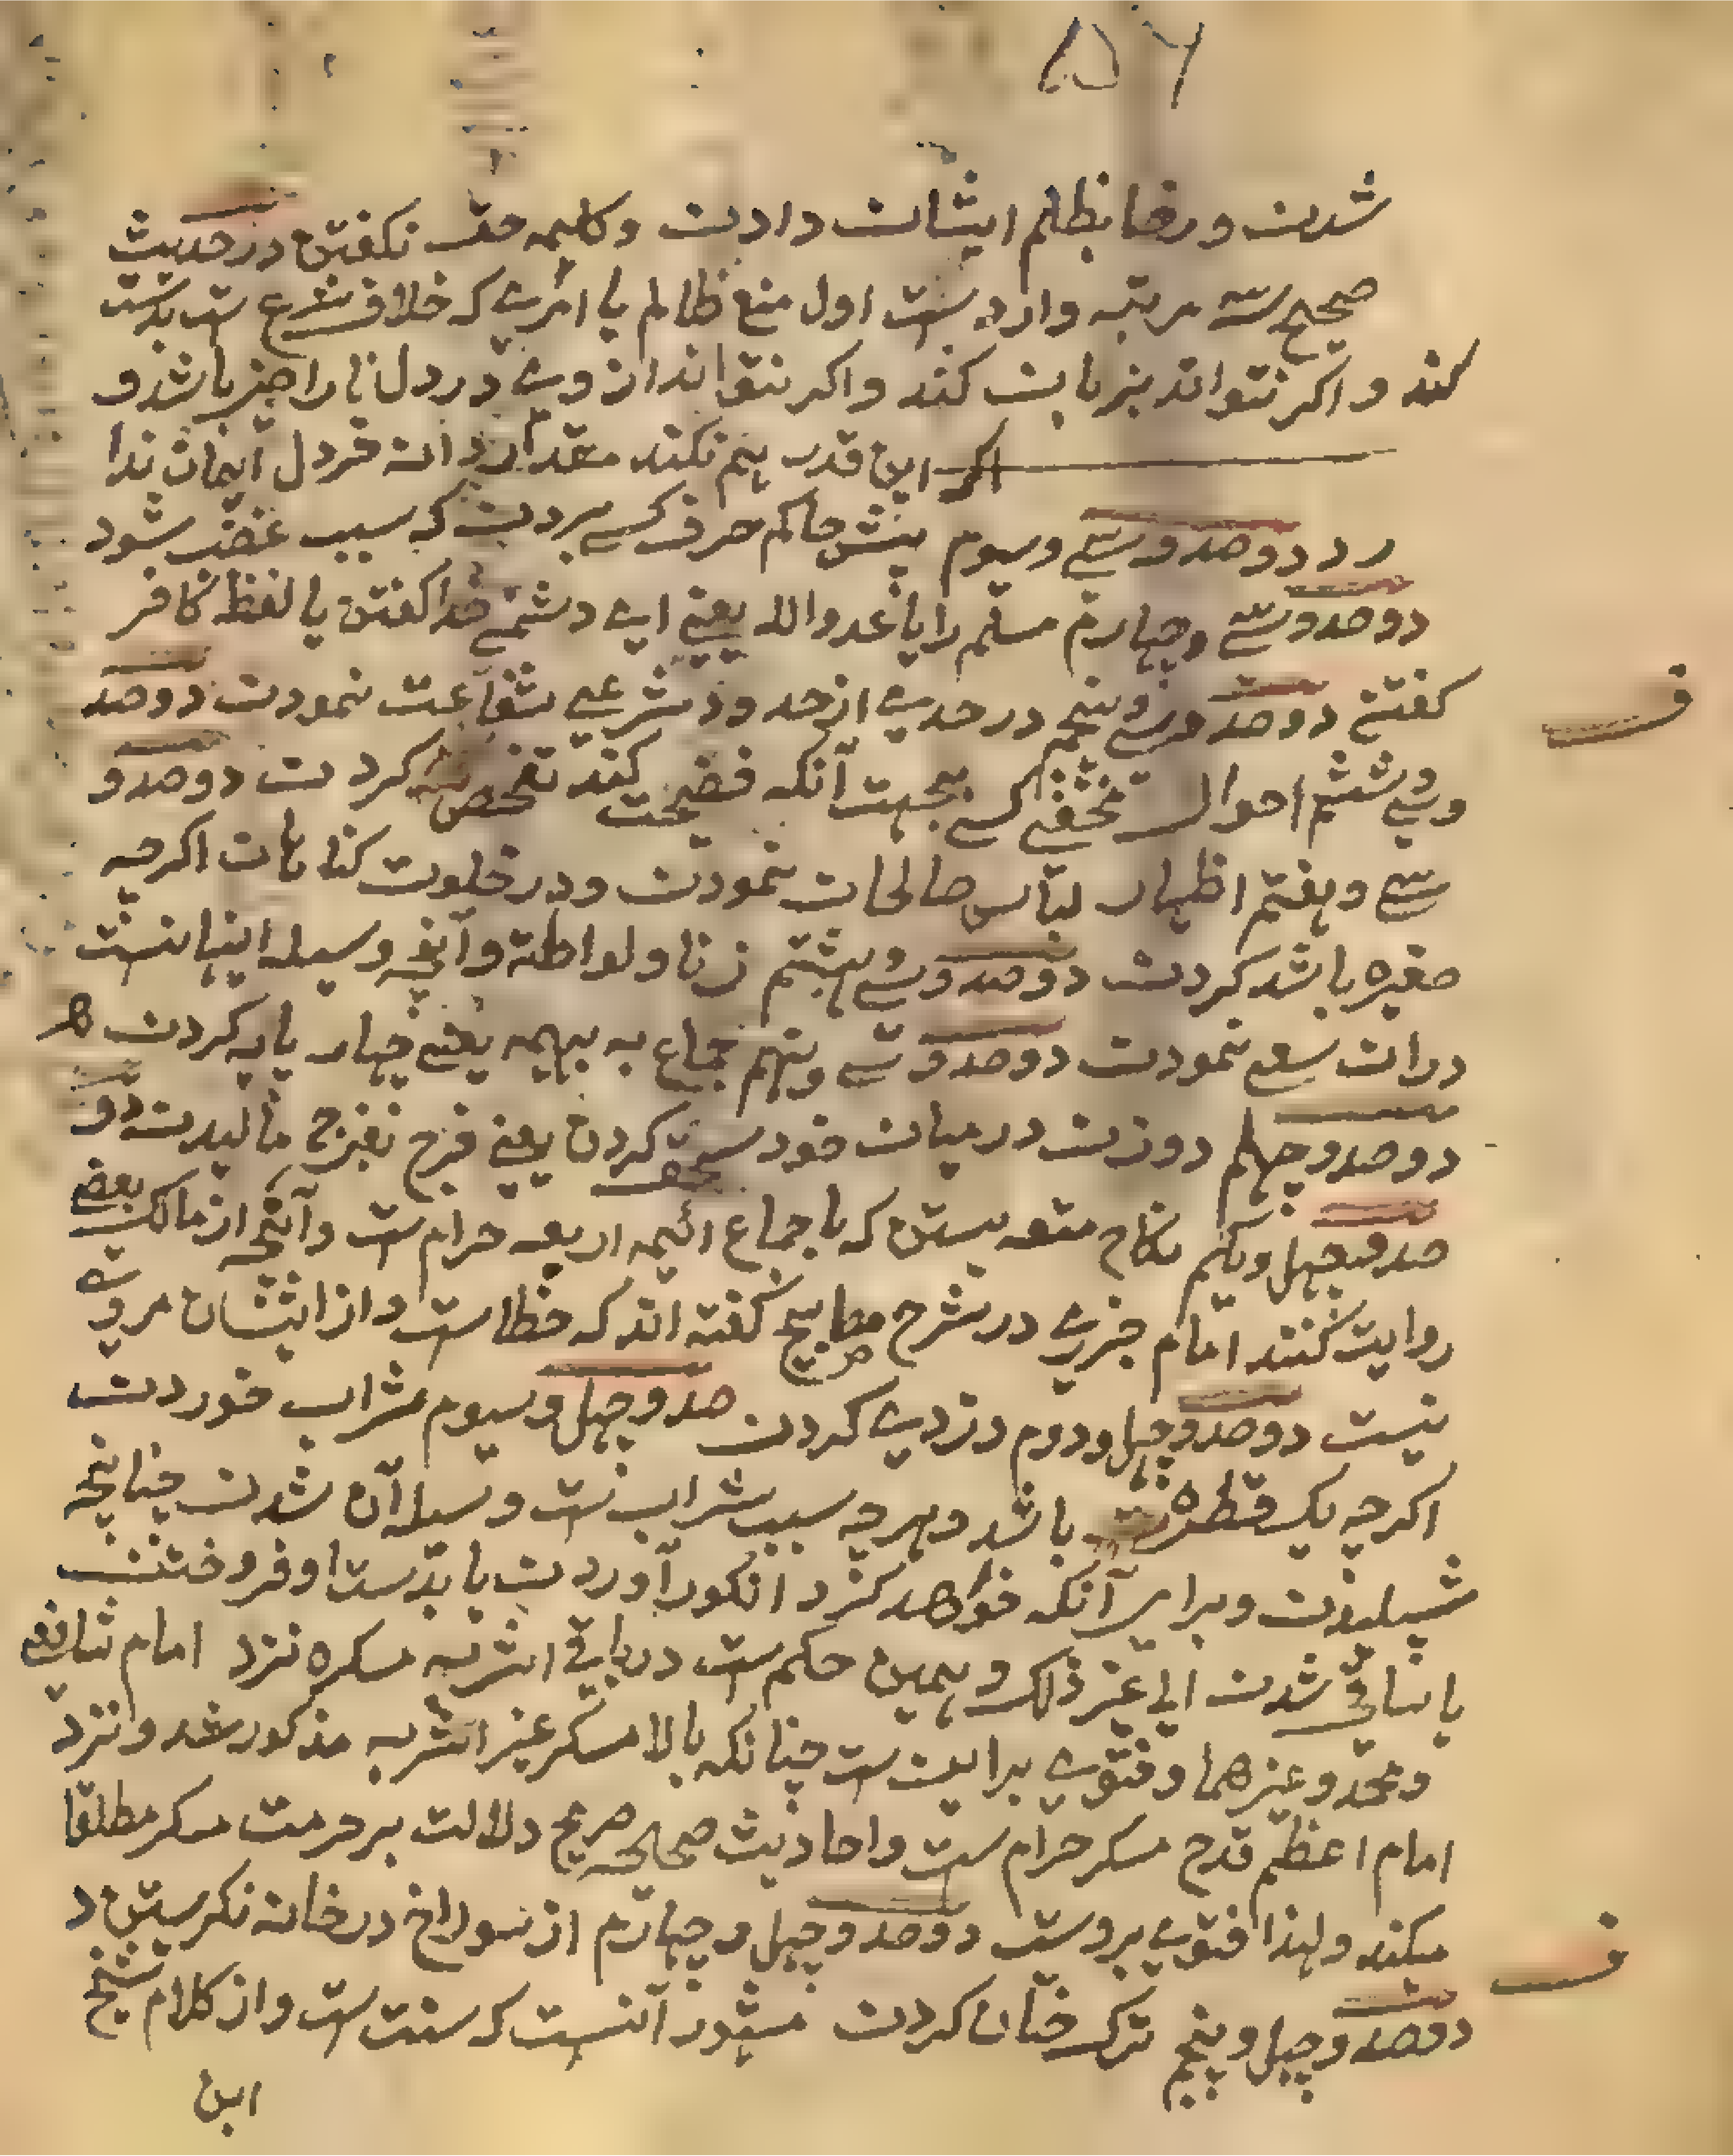 ۸۵۶
شدن و رضا بظلم ایشان دادن و کلیمه حق نکفتن در حدیث
صحیح سه مرتبه وارد ست اول منع ظالم یا امری که خلاف شرع ست بدست
کند و اکر نتواند بزبان کند و اکر نتواند از وی در دل ناراضی باشد و
اکر این قدر هم نکند مقدار دانه خردل ایمان ندا
رد دوصد و سی و سیوم پیش حاکم حرف کسے بردن که سبب غضب شود
دوصد و سی و چهارم مسلم را یا عدوالله یعنے ای دشمن خدا کفتن یا لفظ کافر
کفتن دوصد و سی و پنجم در حدی از حدود شرعی شفاعت نمودن دوصد
و سی و ششم احوال مخفی کسے بجهت آنکه فضیحت کند تفحص کردن دوصد و
سی و هفتم اظهار لباس صالحان نمودن و در خلوت کناهان اکرچه
صغیره باشد کردن دوصد و سی و هشتم زنا و لواطة و آنچه وسیله اینهانست
دران سعی نمودن دوصد و سی و نهم جماع به بهیمه یعنے چهار پایه کردن
دوصد و چهلم دو زن در میان خود سحق کردن یعنی فرج بفرج مالیدن دو
صد و چهل و یکم نکاح متعه بستن که باجماع ائیمه اربعه حرام ست و آنچه از مالک بعضے
روایت کنند امام جزری در شرح مصابیح کفته اند که خطا ست و از ایشان مروی
نیست دوصد و چهل و دوم دزدی کردن صد و چهل و سیوم شراب خوردن
اکرچه یک قطره باشد و هرچه سبب شراب ست وسیله آن شدن چنانچه
وبرای آنکه خواهد کرد انکور آوردن یا بدست او فروختن
یا ساقی شدن الی غیر ذلک و همین حکم ست در باقی اشربه مسکره نزد امام شافعی
و محمد و غیرهما و فتوی براین ست چنانکه بالا مسکر غیر اشربه مذکور شد و نزد
امام اعظم قدح مسکر حرام ست و احادیث صحاح صریح دلالت بر حرمت مسکر مطلقا
میکند و لهذا فتوی بروست دوصد و چهل و چهارم از سوراخ در خانه نکریستن د
دوصد و چهل و پنجم ترک ختان کردن مشهور آنست که سنت ست و از کلام شیخ
ابن
ف
ف